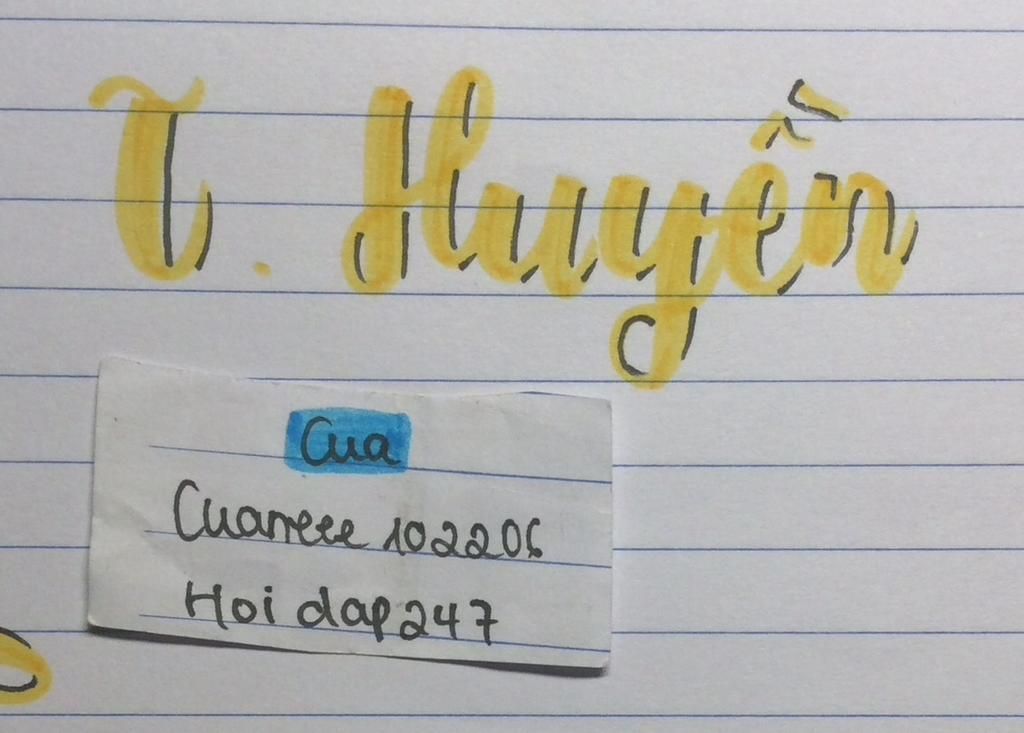 T. Huyền
Cua
Cuarreee 102206
Hoi dap 247